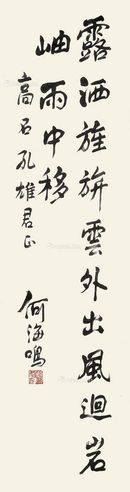 露洒旌旂雲外出風迴岩
岫雨中移
高石孔雄君正
何海鳴